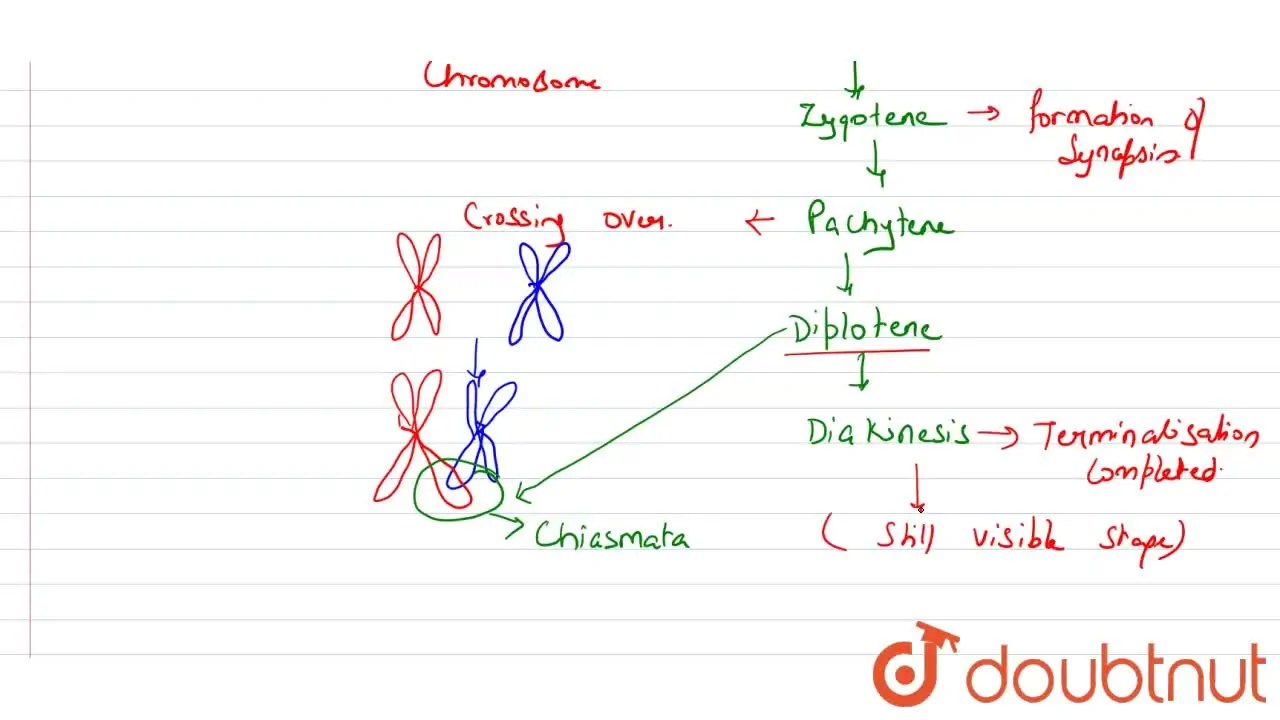 Chromosome
Zygotene → formation of
Synapsis
Crossing over. ← Pachytene
Diplotene
Diakinesis → Terminalisation
Completed.
Chiasmata
( Still visible stage)
doubtnut